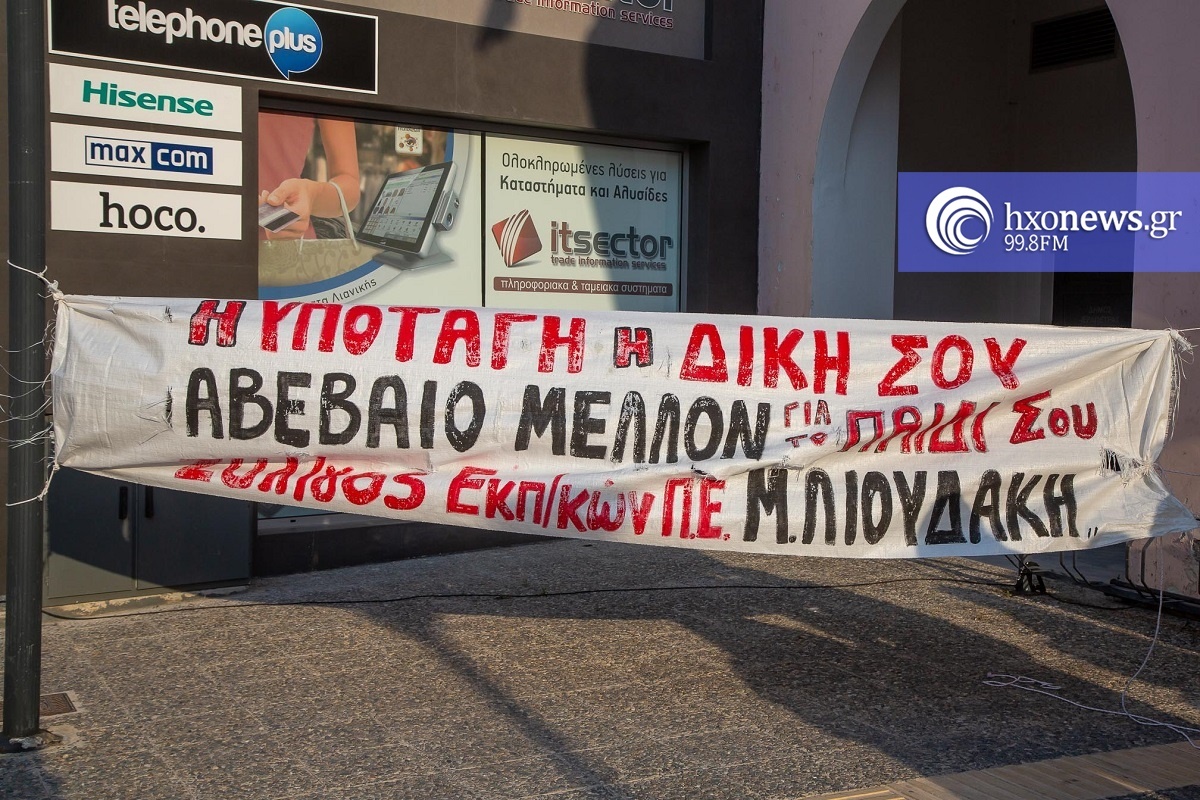 telephone plus
trade information services
Hisense
maxcom
hoco.
Ολοκληρωμένες λύσεις για
Καταστήματα και Αλυσίδες
itsector
trade information services
πληροφοριακα & ταμειακα συστηματα
Λιανικής
hxonews.gr
99.8FM
Η ΥΠΟΤΑΓΗ Η ΔΙΚΗ ΣΟΥ
ΑΒΕΒΑΙΟ ΜΕΛΛΟΝ ΓΙΑ ΤΟ ΠΑΙΔΙ Σου
Σύλλογος Εκπ/κών Π.Ε. "Μ.ΛΙΟΥΔΑΚΗ"